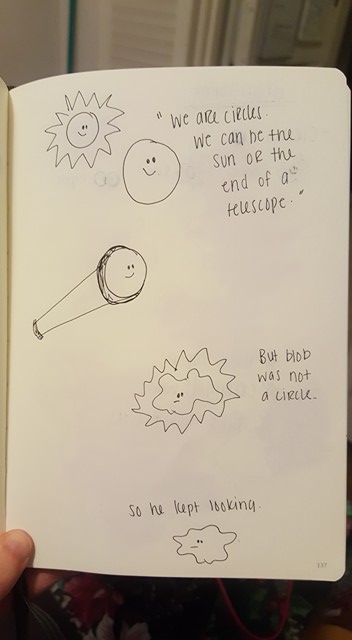 "We are circles.
We can be the
sun or the
end of a
telescope."
But blob
was not
a circle.
so he kept looking.
137